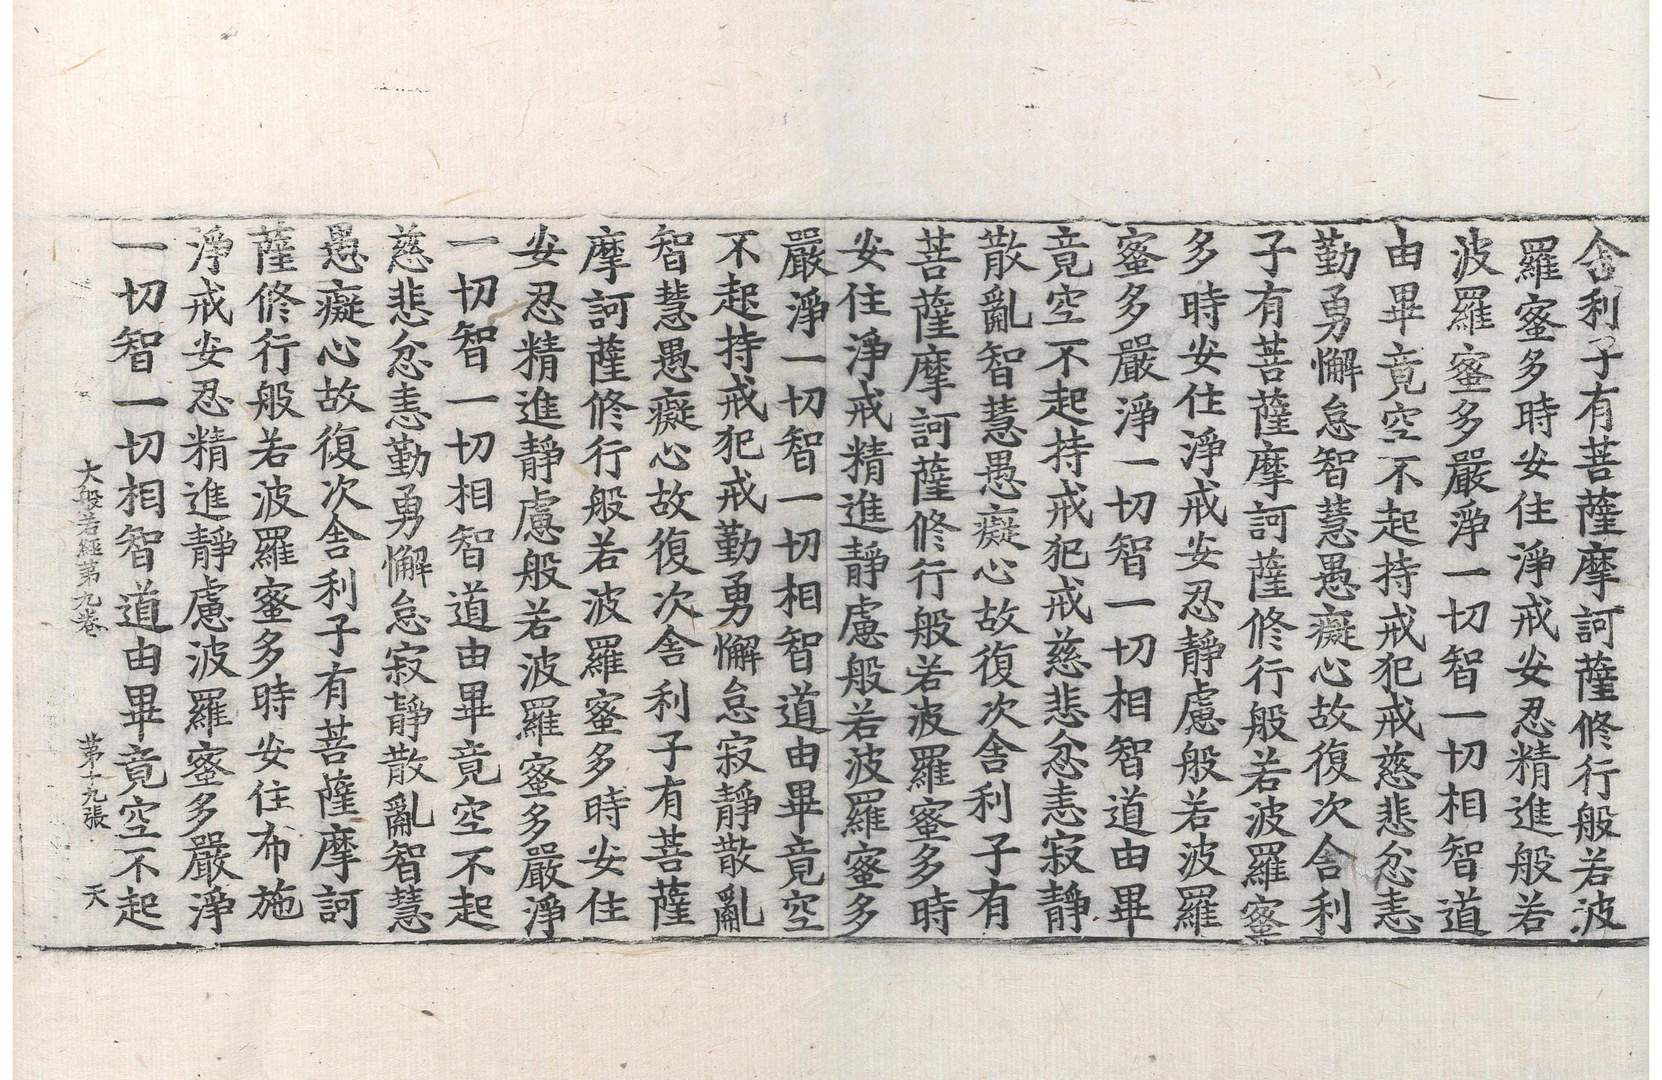 舍利子有菩薩摩訶薩修行般若波
羅蜜多時安住淨戒安忍精進般若
波羅蜜多嚴淨一切智一切相智道
由畢竟空不起持戒犯戒慈悲忿恚
勤勇懈怠智慧愚癡心故復次舍利
子有菩薩摩訶薩修行般若波羅蜜
多時安住淨戒安忍靜慮般若波羅
蜜多嚴淨一切智一切相智道由畢
竟空不起持戒犯戒慈悲忿恚寂靜
散亂智慧愚癡心故復次舍利子有
菩薩摩訶薩修行般若波羅蜜多時
安住淨戒精進靜慮般若波羅蜜多
嚴淨一切智一切相智道由畢竟空
不起持戒犯戒勤勇懈怠寂靜散亂
智慧愚癡心故復次舍利子有菩薩
摩訶薩修行般若波羅蜜多時安住
安忍精進靜慮般若波羅蜜多嚴淨
一切智一切相智道由畢竟空不起
慈悲忿恚勤勇懈怠寂靜散亂智慧
愚癡心故復次舍利子有菩薩摩訶
薩修行般若波羅蜜多時安住布施
淨戒安忍精進靜慮波羅蜜多嚴淨
一切智一切相智道由畢竟空不起
大般若經第九卷 第十九張 天